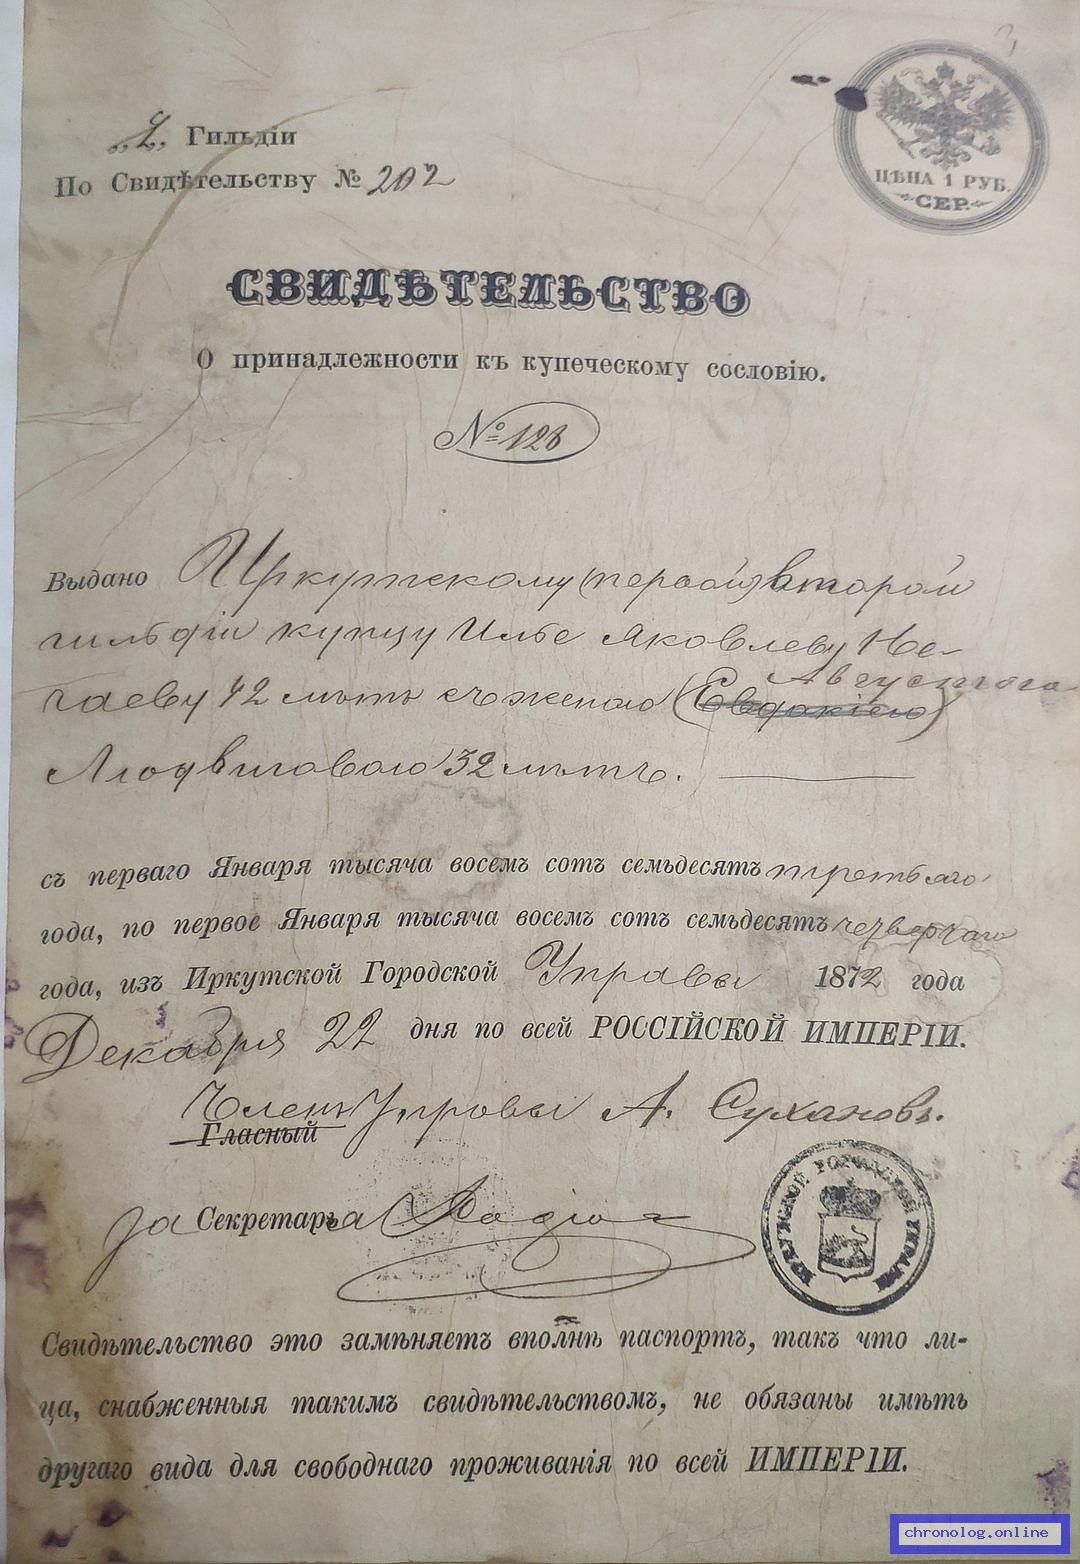 „2„ Гильдіи
По Свидѣтельству № 202
ЦѢНА 1 РУБ.
СЕР.
СВИДѢТЕЛЬСТВО
О принадлежности къ купеческому сословію.
№ 128
Выдано Иркутскому (первой) второй
гильдіи купцу Илье Яковлеву Не-
Августого
чаеву 42 лѣтъ съ женою (Евдокіею)
Людвиговою 32 лѣтъ.
съ перваго Января тысяча восемъ сотъ семьдесятъ третьяго
года, по первое Января тысяча восемъ сотъ семьдесятъ четвертаго
года, изъ Иркутской Городской Управы 1872 года
Декабря 22 дня по всей РОССІЙСКОЙ ИМПЕРІИ.
Членъ Управы А. Сухановъ.
Гласный
За Секретаря
ИРКУТСКОЙ ГОРОДСКОЙ УПРАВЫ
Свидѣтельство это замѣняетъ вполнѣ паспортъ, такъ что ли-
ца, снабженныя такимъ свидѣтельствомъ, не обязаны имѣть
другаго вида для свободнаго проживанія по всей ИМПЕРІИ.
chronolog.online